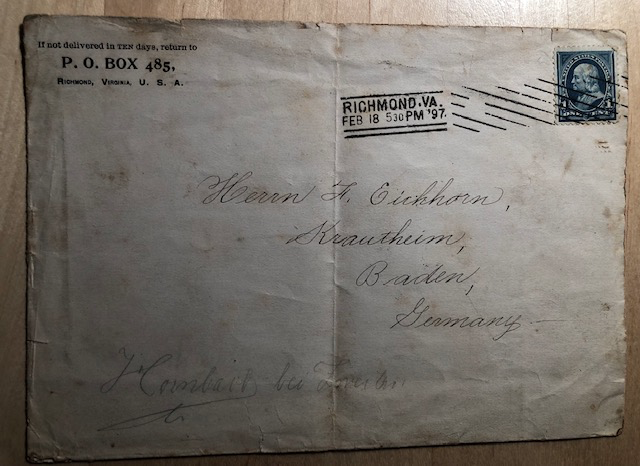 If not delivered in TEN days, return to
P. O. BOX 485,
RICHMOND, VIRGINIA, U. S. A.
RICHMOND.VA.
FEB 18 530 PM '97
Herrn F. Eichhorn,
Krautheim,
Baden,
Germany
bei